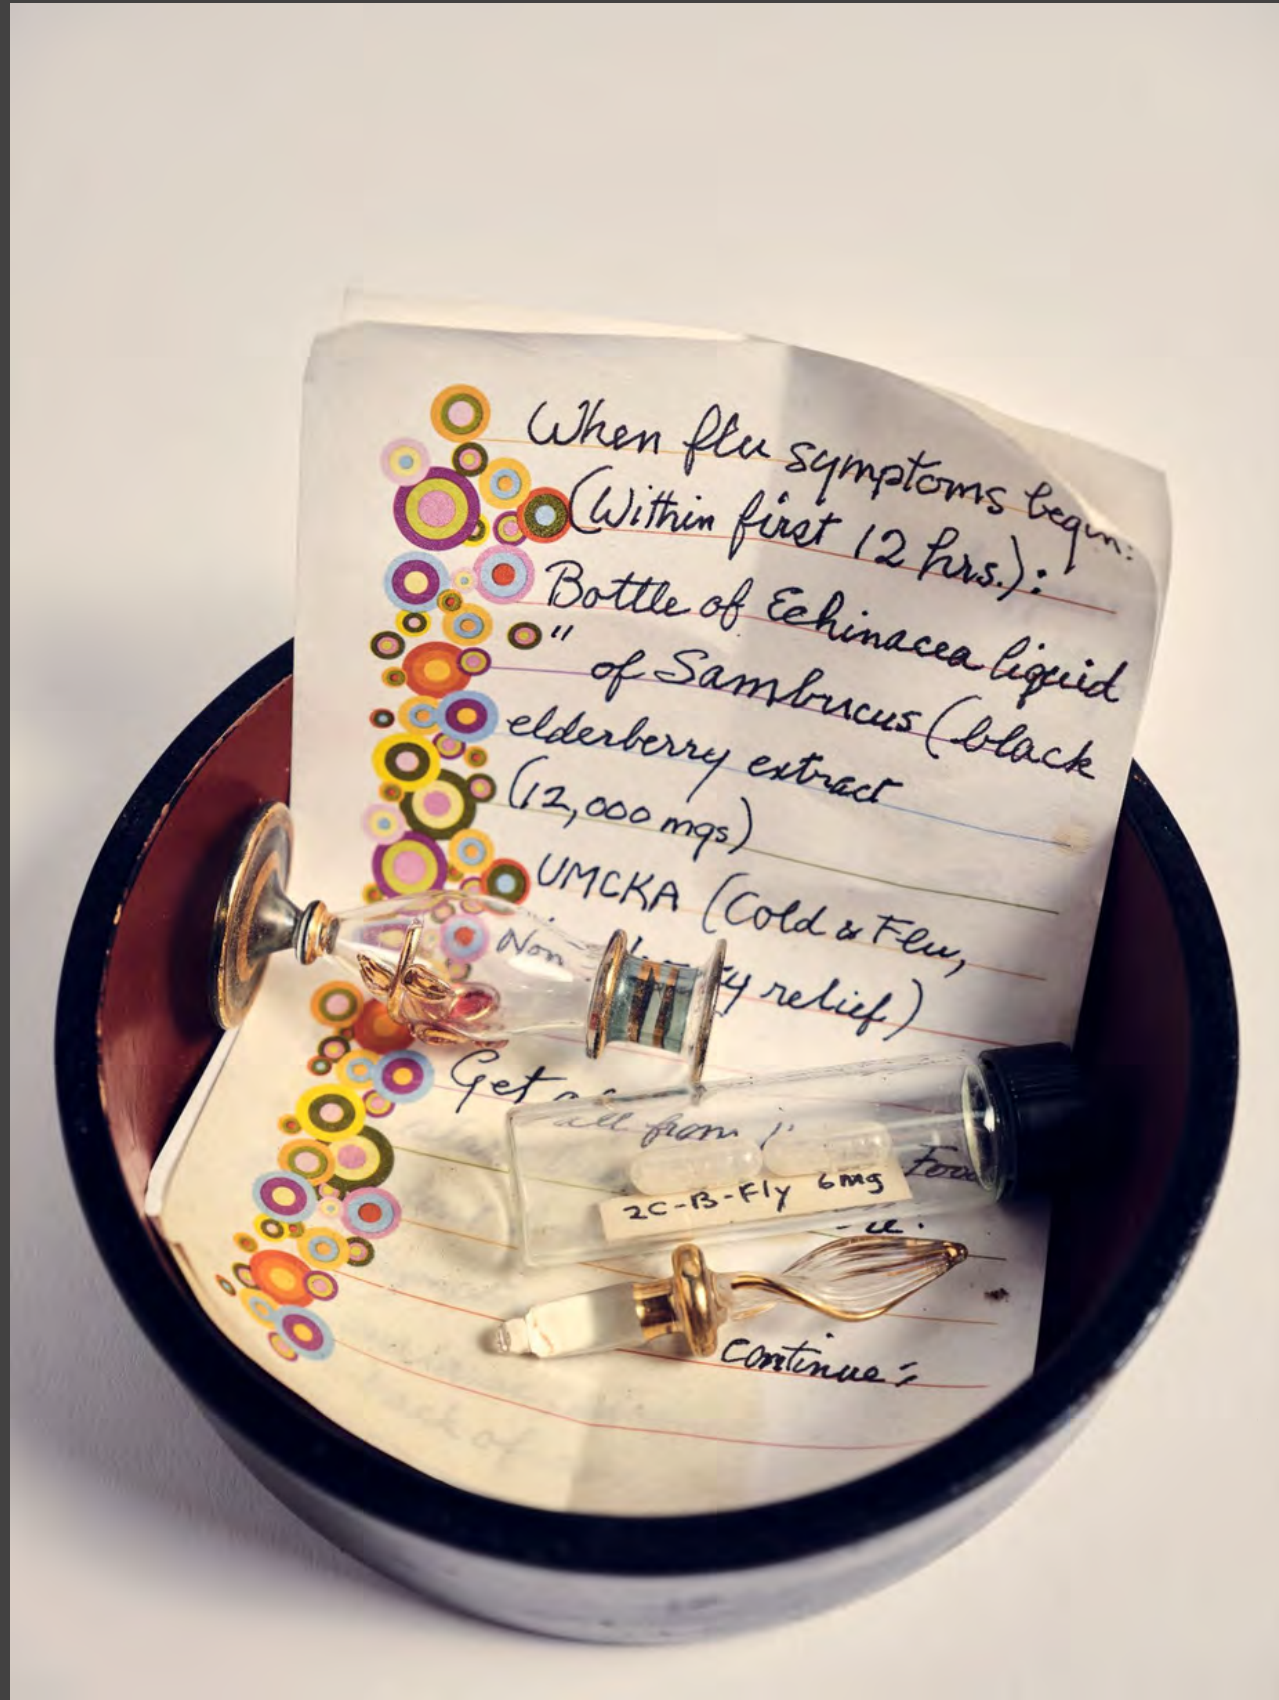 When flu symptoms begin:
(Within first 12 hrs.):
Bottle of Echinacea liquid
" of Sambucus (black
elderberry extract
(12,000 mgs)
UMCKA (Cold & Flu,
Non
relief)
Get all from
Food
2C-B-Fly 6mg
continue: